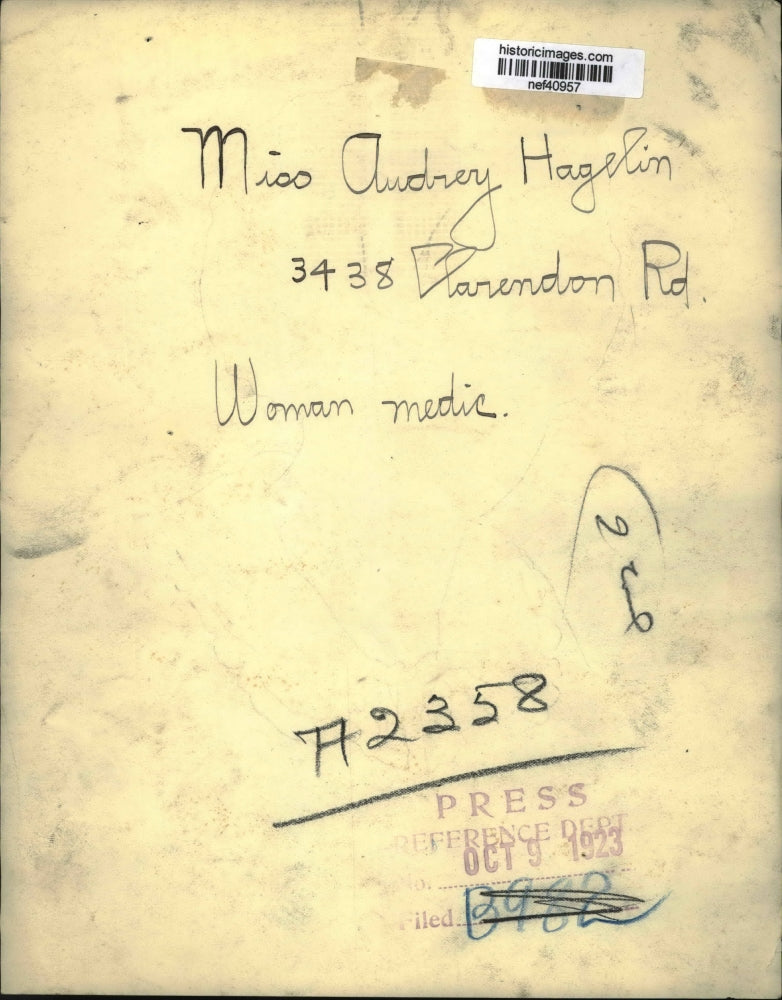 historicimages.com
nef40957
Miss Audrey Hagelin
3438 Clarendon Rd.
Woman medic.
A2358
PRESS
REFERENCE DEPT
OCT 9 1923
No.
Filed B982